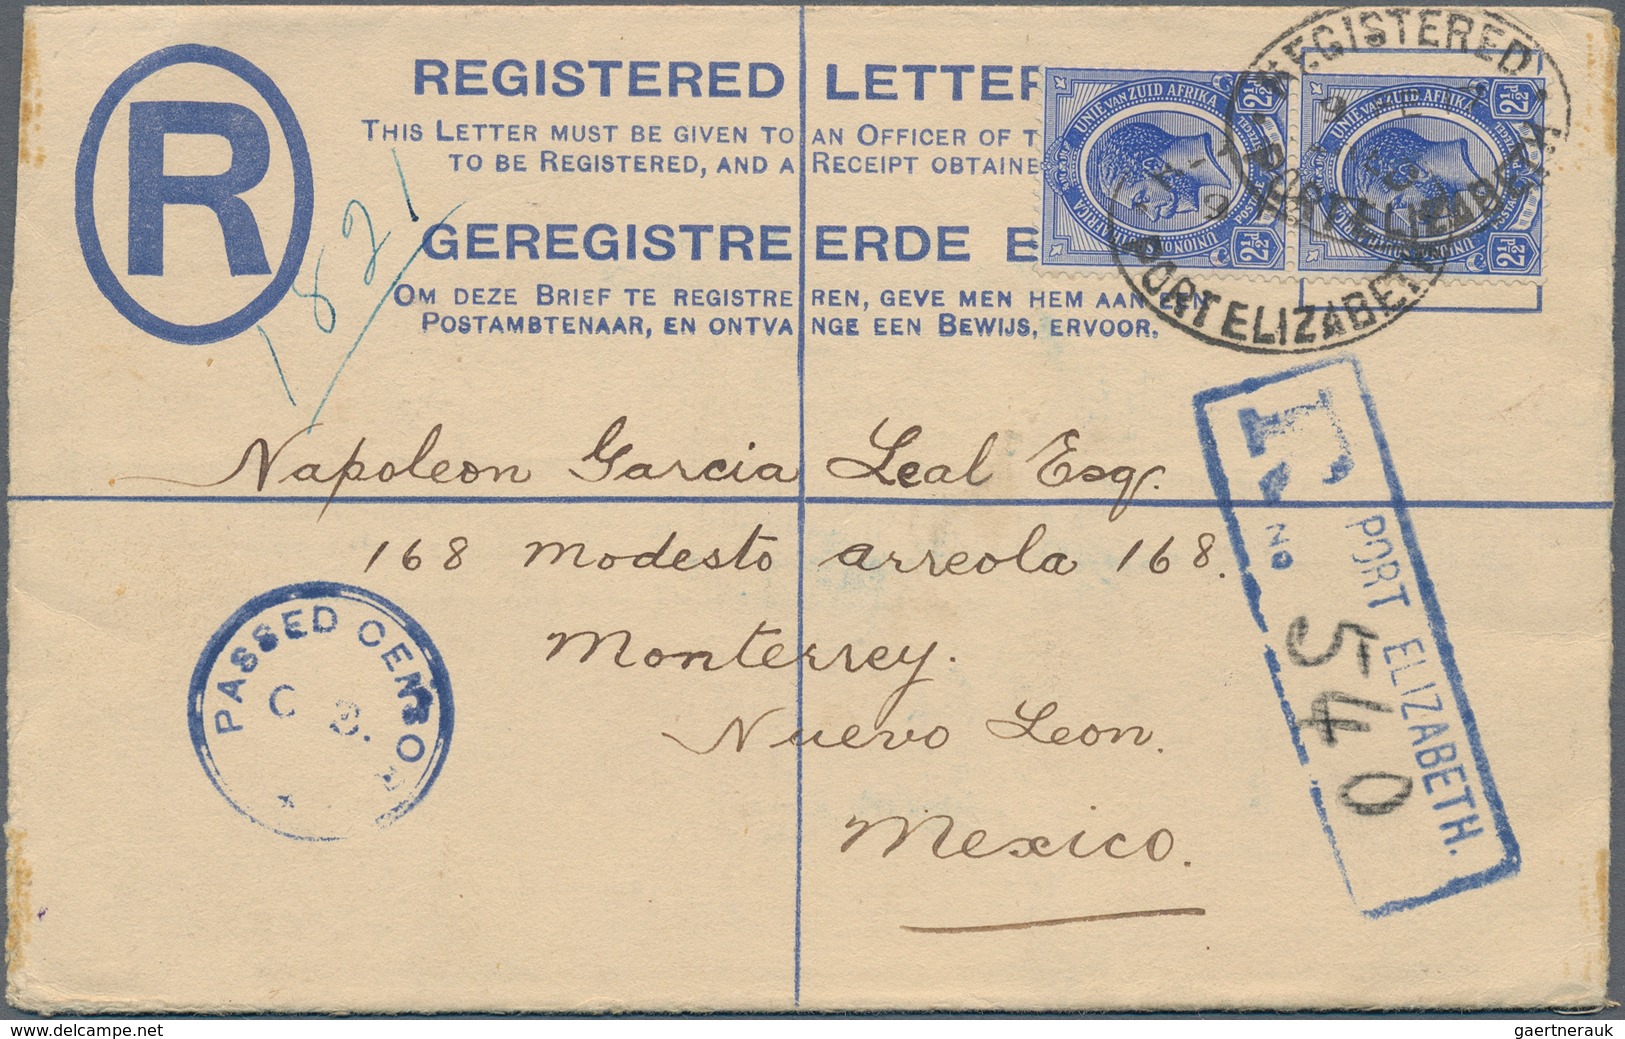 REGISTERED LETTER
THIS LETTER MUST BE GIVEN TO AN OFFICER OF T
TO BE REGISTERED, AND A RECEIPT OBTAINE
GEREGISTREERDE B
OM DEZE BRIEF TE REGISTREREN, GEVE MEN HEM AAN EEN
POSTAMBTENAAR, EN ONTVANGE EEN BEWIJS, ERVOOR.
R
1821
UNIE VAN ZUID AFRIKA
UNION OF SOUTH AFRICA
2½d
2½d
UNIE VAN ZUID AFRIKA
UNION OF SOUTH AFRICA
2½d
2½d
REGISTERED
PORT ELIZABETH
PORT ELIZABETH
Napoleon Garcia Leal Esq.
168 Modesto arreola 168.
Monterrey.
Nuevo Leon.
Mexico.
PASSED CENSOR
C B.
R
PORT ELIZABETH.
No
540
www.delcampe.net
gaertnerauk